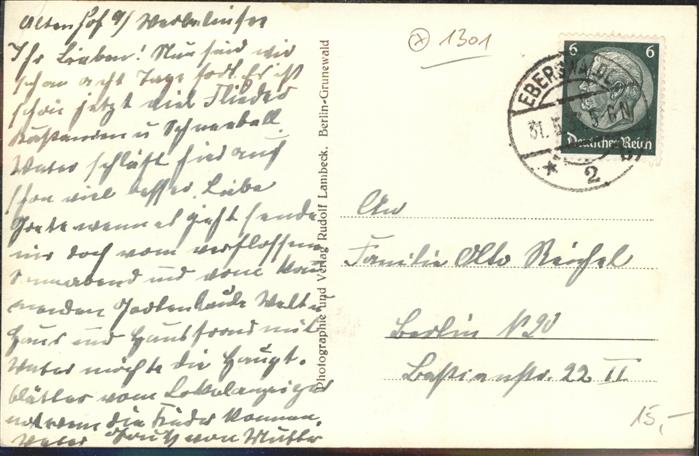 Altenhof a/ Werbelinsee
Ihr Lieben! Nun sind wir
schon acht Tage fort. Es ist
schön jetzt viel Flieder
Kastanien u Schneeball
Vater schläft hier auch
schon viel besser. Liebe
Grete wenn es geht sende
mir doch vom verflossenen
Sonnabend und vom kom
menden Gartenlaube Welt
Haus und Hausfrau mit
Vater möchte die Haupt-
blätter vom Lokalanzeiger
wenn die Kinder kommen.
Vater Gruß von Mutter
Photographie und Verlag Rudolf Lambeck, Berlin-Grunewald
1301
6 6
Deutsches Reich
EBERSWALDE
31. 5
2
An
Familie Otto Reichel
Berlin N 20
Bastianstr. 22 II
15,-